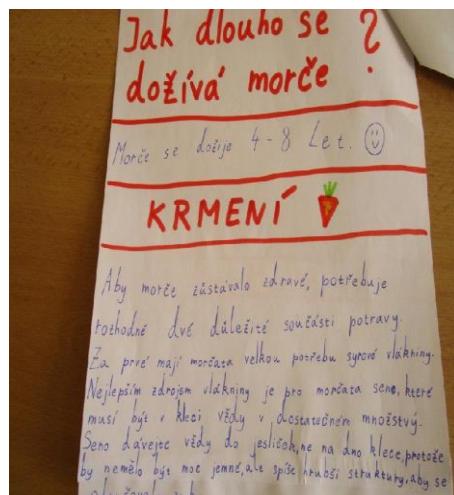 Jak dlouho se
dožívá morče ?
Morče se dožije 4-8 Let.
KRMENÍ
Aby morče zůstávalo zdravé, potřebuje
rozhodně dvě důležité součásti potravy.
Za prvé mají morčata velkou potřebu syrové vlákniny.
Nejlepším zdrojem vlákniny je pro morčata seno, které
musí být v kleci vždy v dostatečném množstvý.
Seno dávejte vždy do jesliček, ne na dno klece, protože
by nemělo být moc jemné, ale spíše hrubší struktury, aby se